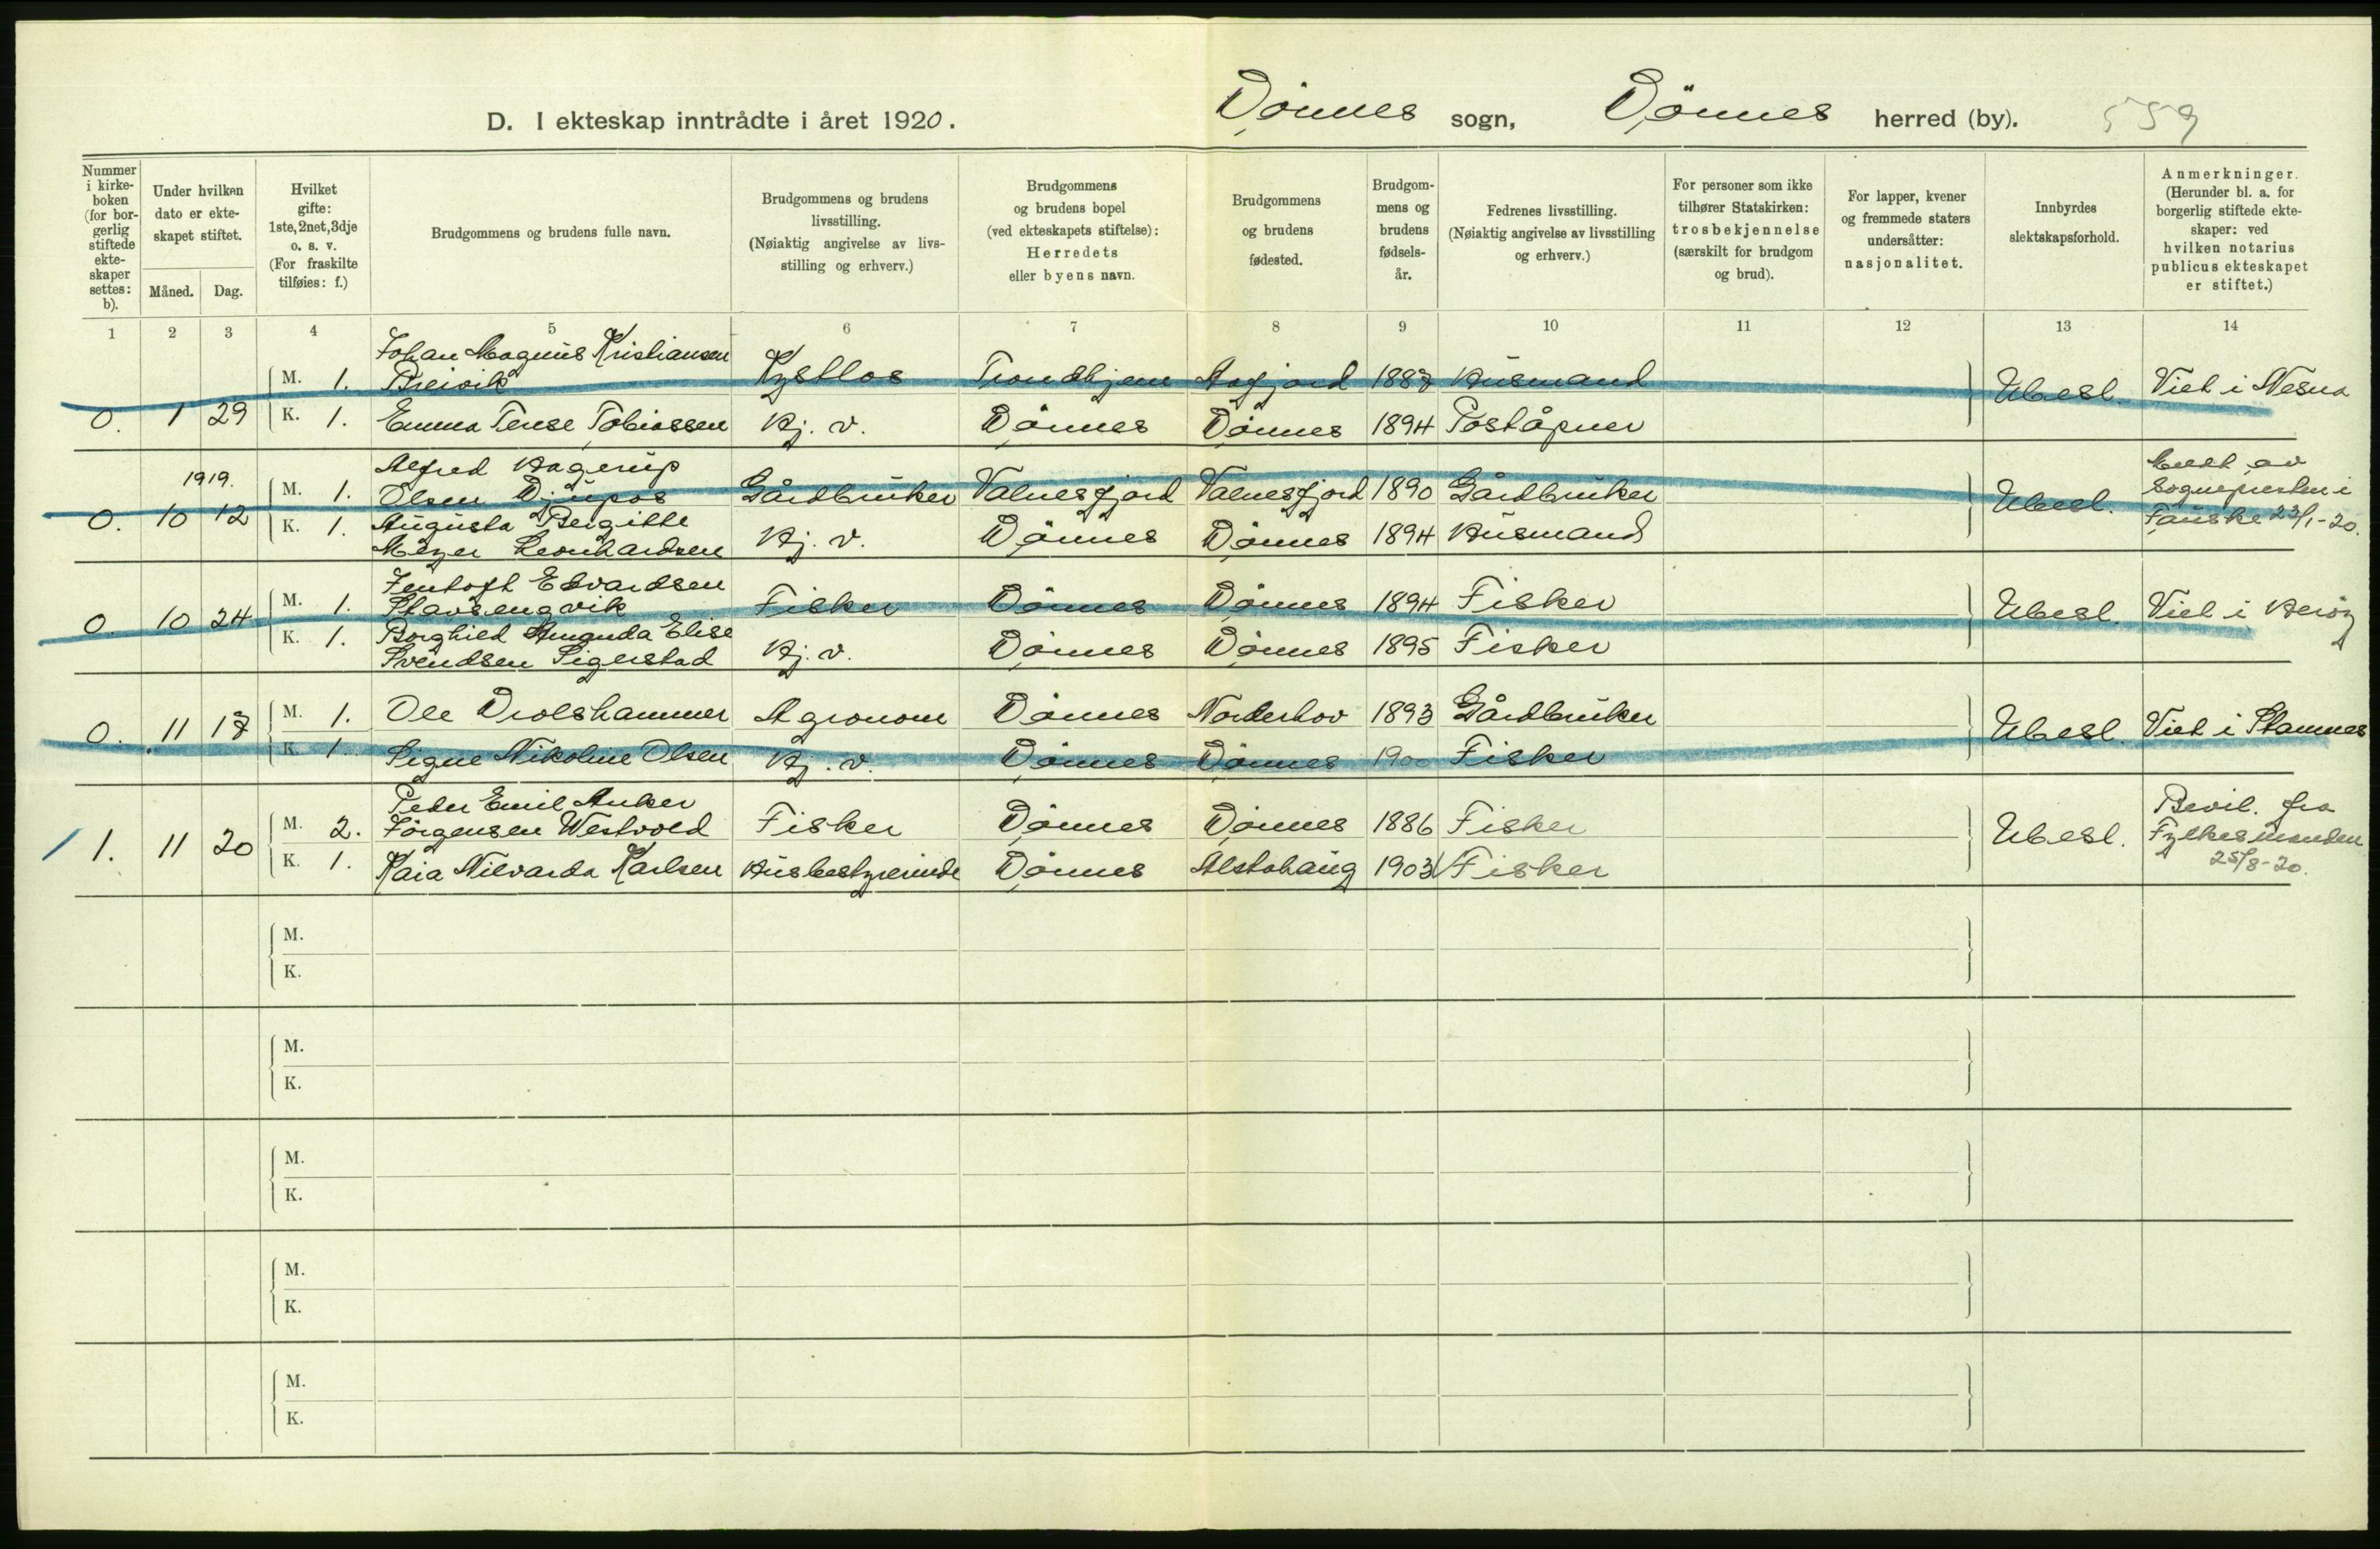 D. I ekteskap inntrådte i året 1920.
Dønnes sogn, Dønnes herred (by). 559
Nummer i kirkeboken (for borgerlig stiftede ekteskaper settes: b).
Under hvilken dato er ekteskapet stiftet.
Måned. Dag.
Hvilket gifte: 1ste, 2net, 3dje o. s. v. (For fraskilte tilføies: f.)
Brudgommens og brudens fulle navn.
Brudgommens og brudens livsstilling. (Nøiaktig angivelse av livsstilling og erhverv.)
Brudgommens og brudens bopel (ved ekteskapets stiftelse): Herredets eller byens navn.
Brudgommens og brudens fødested.
Brudgommens og brudens fødselsår.
Fedrenes livsstilling. (Nøiaktig angivelse av livsstilling og erhverv.)
For personer som ikke tilhører Statskirken: trosbekjennelse (særskilt for brudgom og brud).
For lapper, kvener og fremmede staters undersåtter: nasjonalitet.
Innbyrdes slektskapsforhold.
Anmerkninger. (Herunder bl. a. for borgerlig stiftede ekteskaper: ved hvilken notarius publicus ekteskapet er stiftet.)
1 2 3 4 5 6 7 8 9 10 11 12 13 14
Johan Magnus Kristiansen
M. 1. Breivik Kystlos Trondhjem Aafjord 1887 Husmand Ubesl. Viet i Nesna
0. 1 29 K. 1. Emma Tense Tobiassen Hj. v. Dønnes Dønnes 1894 Poståpner
1919. Alfred Hagerup
M. 1. Olsen Djupos Gårdbruker Valnesfjord Valnesfjord 1890 Gårdbruker Ubesl. Meldt av Sognepresten i Fauske 23/1-20.
0. 10 12 K. 1. Augusta Bergitte
Meyer Leonhardsen Hj. v. Dønnes Dønnes 1894 Husmand
Jentoft Edvardsen
M. 1. Stavsengvik Fisker Dønnes Dønnes 1894 Fisker Ubesl. Viet i Herøy
0. 10 24 K. 1. Borghild Amanda Elise
Svendsen Sigerstad Hj. v. Dønnes Dønnes 1895 Fisker
M. 1. Ole Drolshammer Agronom Dønnes Norderhov 1893 Gårdbruker Ubesl. Viet i Stamnes
0. 11 17 K. 1. Signe Nikoline Olsen Hj. v. Dønnes Dønnes 1900 Fisker
Peder Emil Anker
M. 2. Jörgensen Westvold Fisker Dønnes Dønnes 1886 Fisker Ubesl. Bevil. fra Fylkesmanden 25/8-20.
1. 11 20 K. 1. Kaia Nilvarda Karlsen Husbestyrerinde Dønnes Alstahaug 1903 Fisker
M.
K.
M.
K.
M.
K.
M.
K.
M.
K.